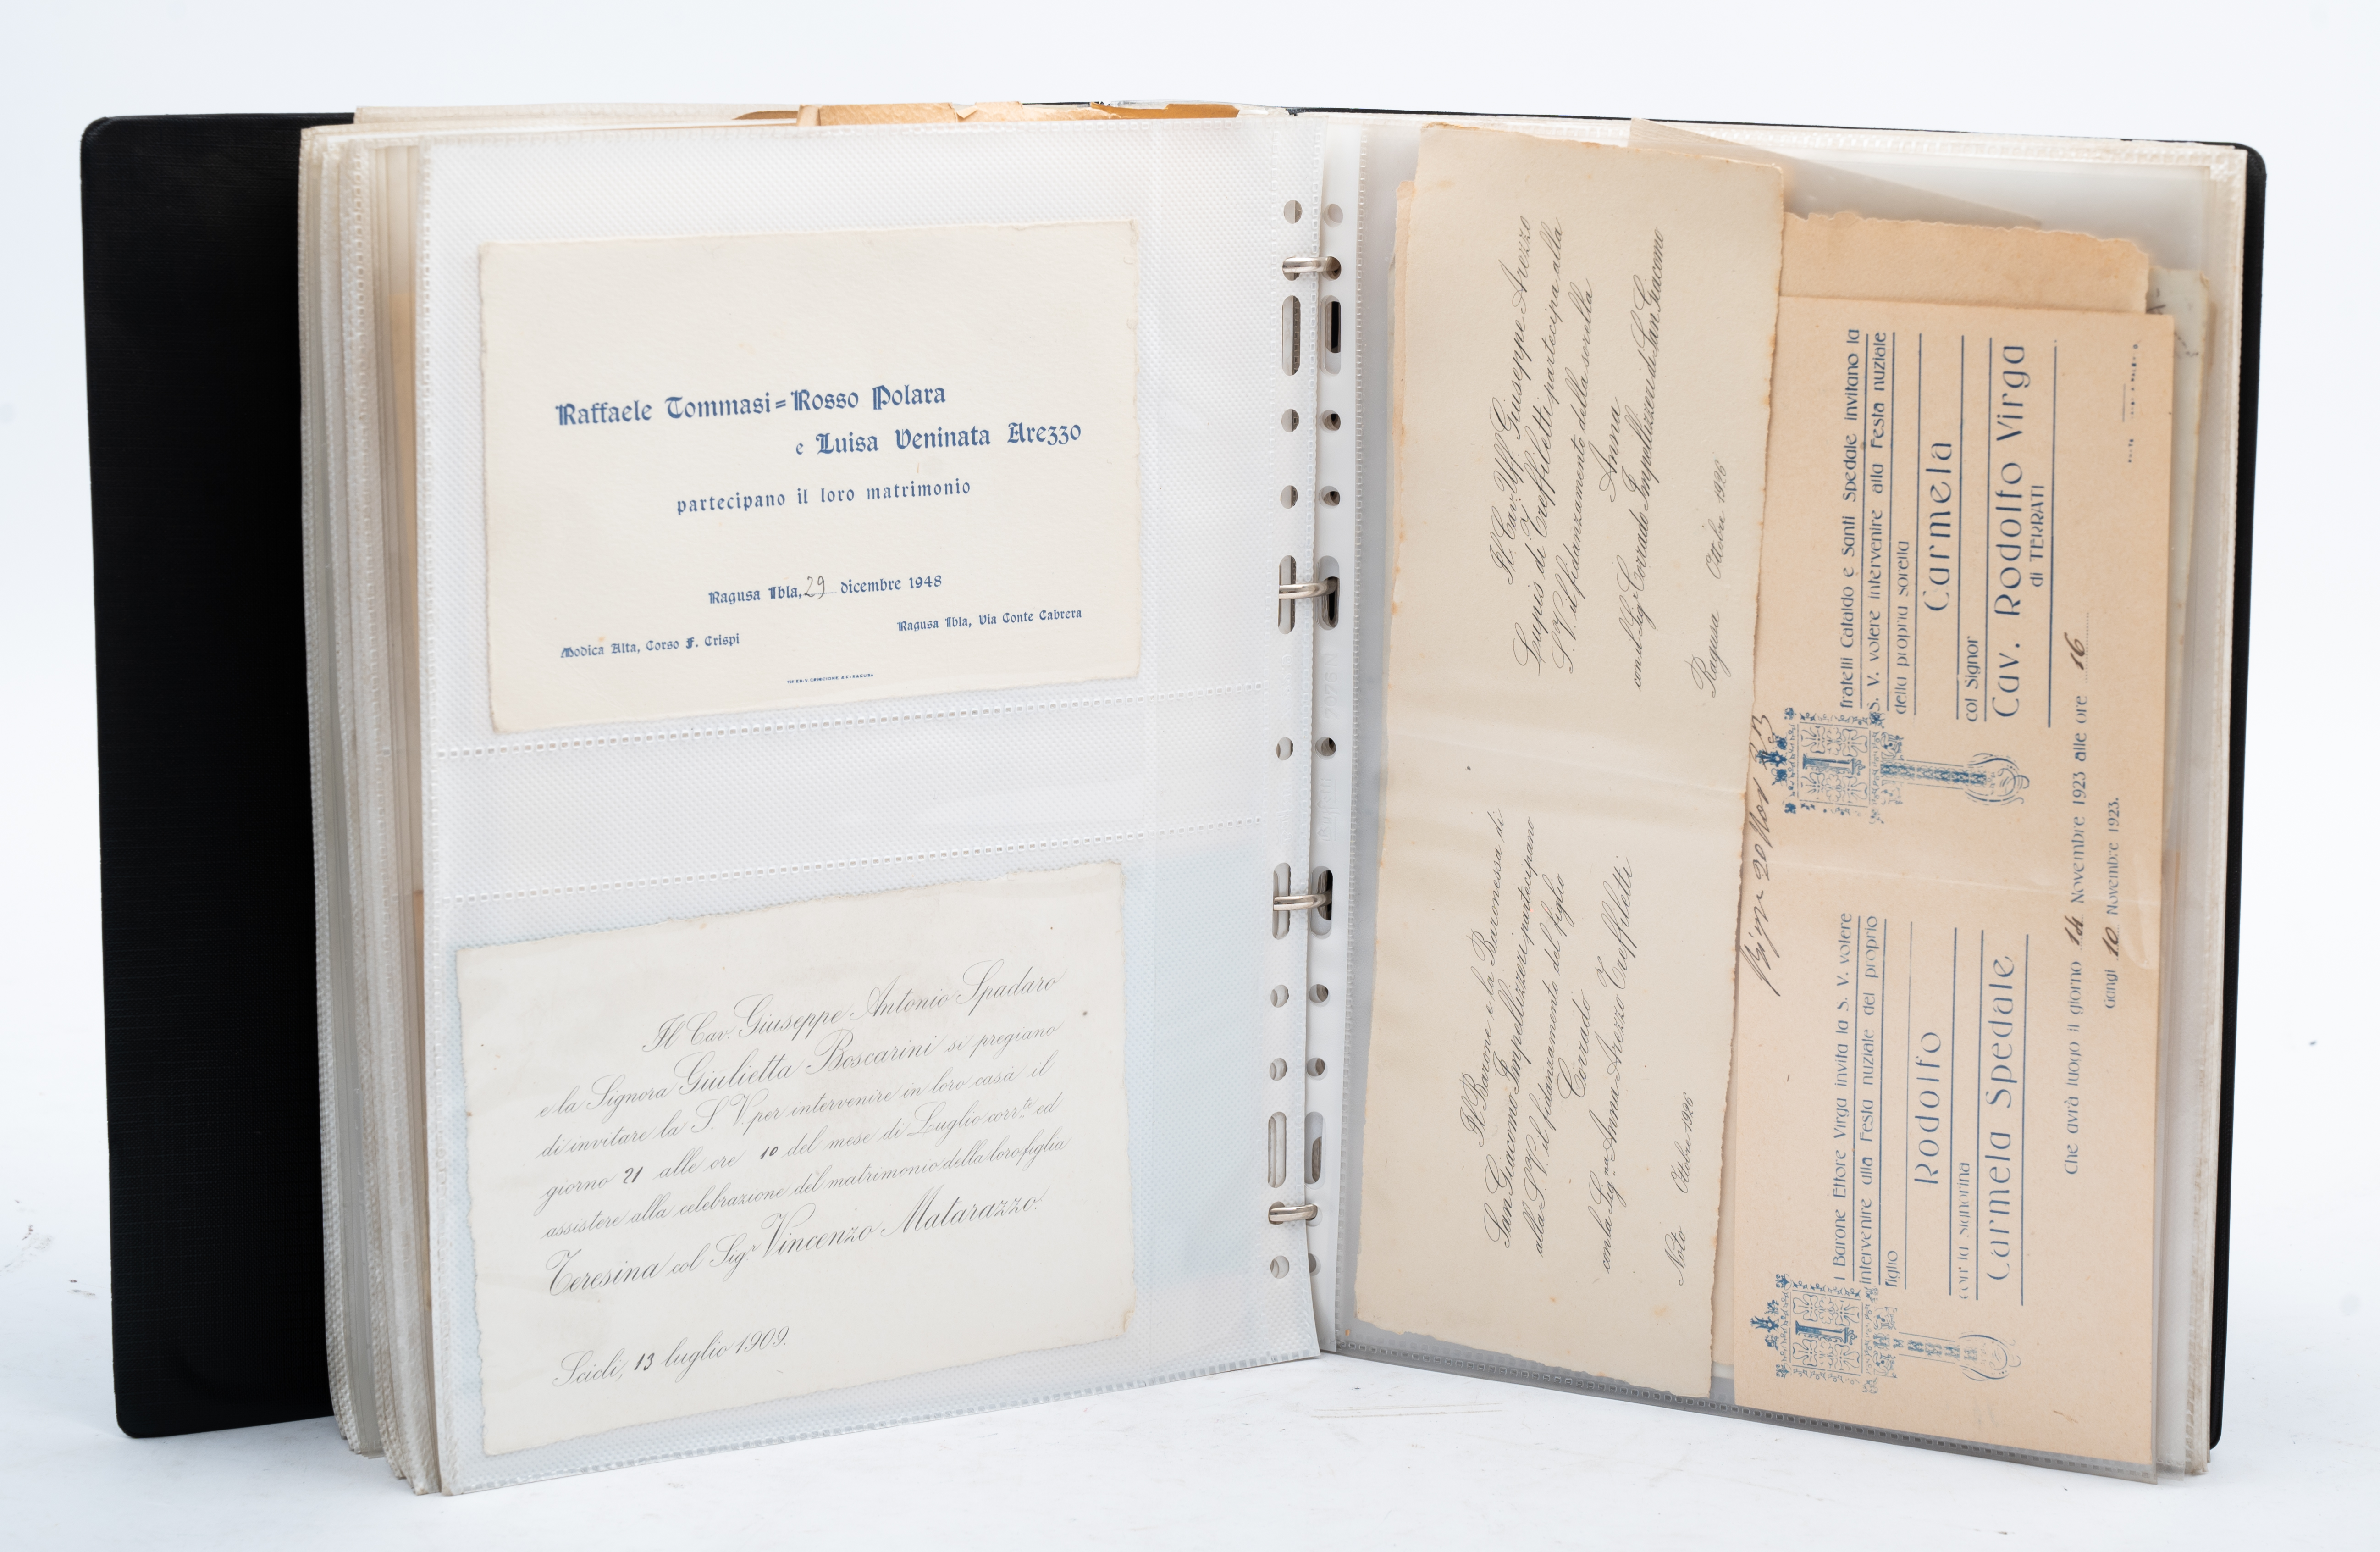 Raffaele Tommasi=Rosso Polara
e Luisa Veninata Arezzo
partecipano il loro matrimonio
Ragusa Ibla, 29 dicembre 1948
Modica Alta, Corso F. Crispi
Ragusa Ibla, Via Conte Cabrera
Il Cav. Giuseppe Antonio Spadaro
e la Signora Giulietta Boscarini si pregiano
di invitare la S. V. per intervenire in loro casa il
giorno 21 alle ore 10 del mese di Luglio corr.te ed
assistere alla celebrazione del matrimonio della loro figlia
Teresina col Sig.r Vincenzo Matarazzo.
Scicli, 13 luglio 1909.
Il Barone e la Baronessa di
San Giacomo Impellizzeri partecipano
alla S. V. il fidanzamento del figlio
Corrado
con la Sig.na Anna Arezzo Treffiletti
Noto Ottobre 1926
Il Cav. Uff. Giuseppe Arezzo
Lupis di Treffiletti partecipa alla
S. V. il fidanzamento della sorella
Anna
con il Sig.r Corrado Impellizzeri di San Giacomo
Ragusa Ottobre 1926
Il Barone Ettore Virga invita la S. V. volere
intervenire alla Festa nuziale del proprio
figlio
Rodolfo
con la signorina
Carmela Spedale
I fratelli Cataldo e Santi Spedale invitano la
S. V. volere intervenire alla Festa nuziale
della propria sorella
Carmela
col Signor
Cav. Rodolfo Virga
di TERRATI
Che avrà luogo il giorno 14 Novembre 1923 alle ore 16
Gangi 10 Novembre 1923.